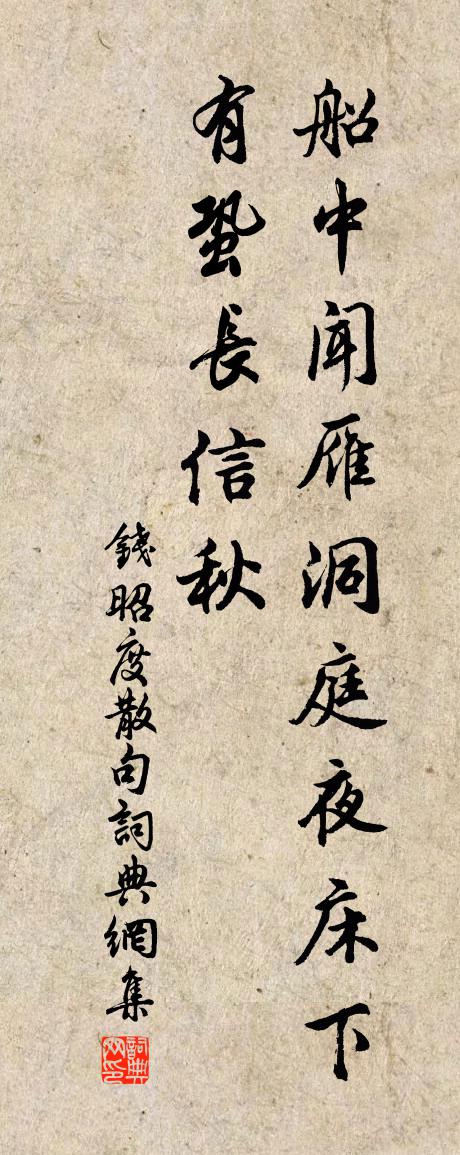 船中聞雁洞庭夜床下
有蛩長信秋
錢昭度散句詞典網集
詞典网印